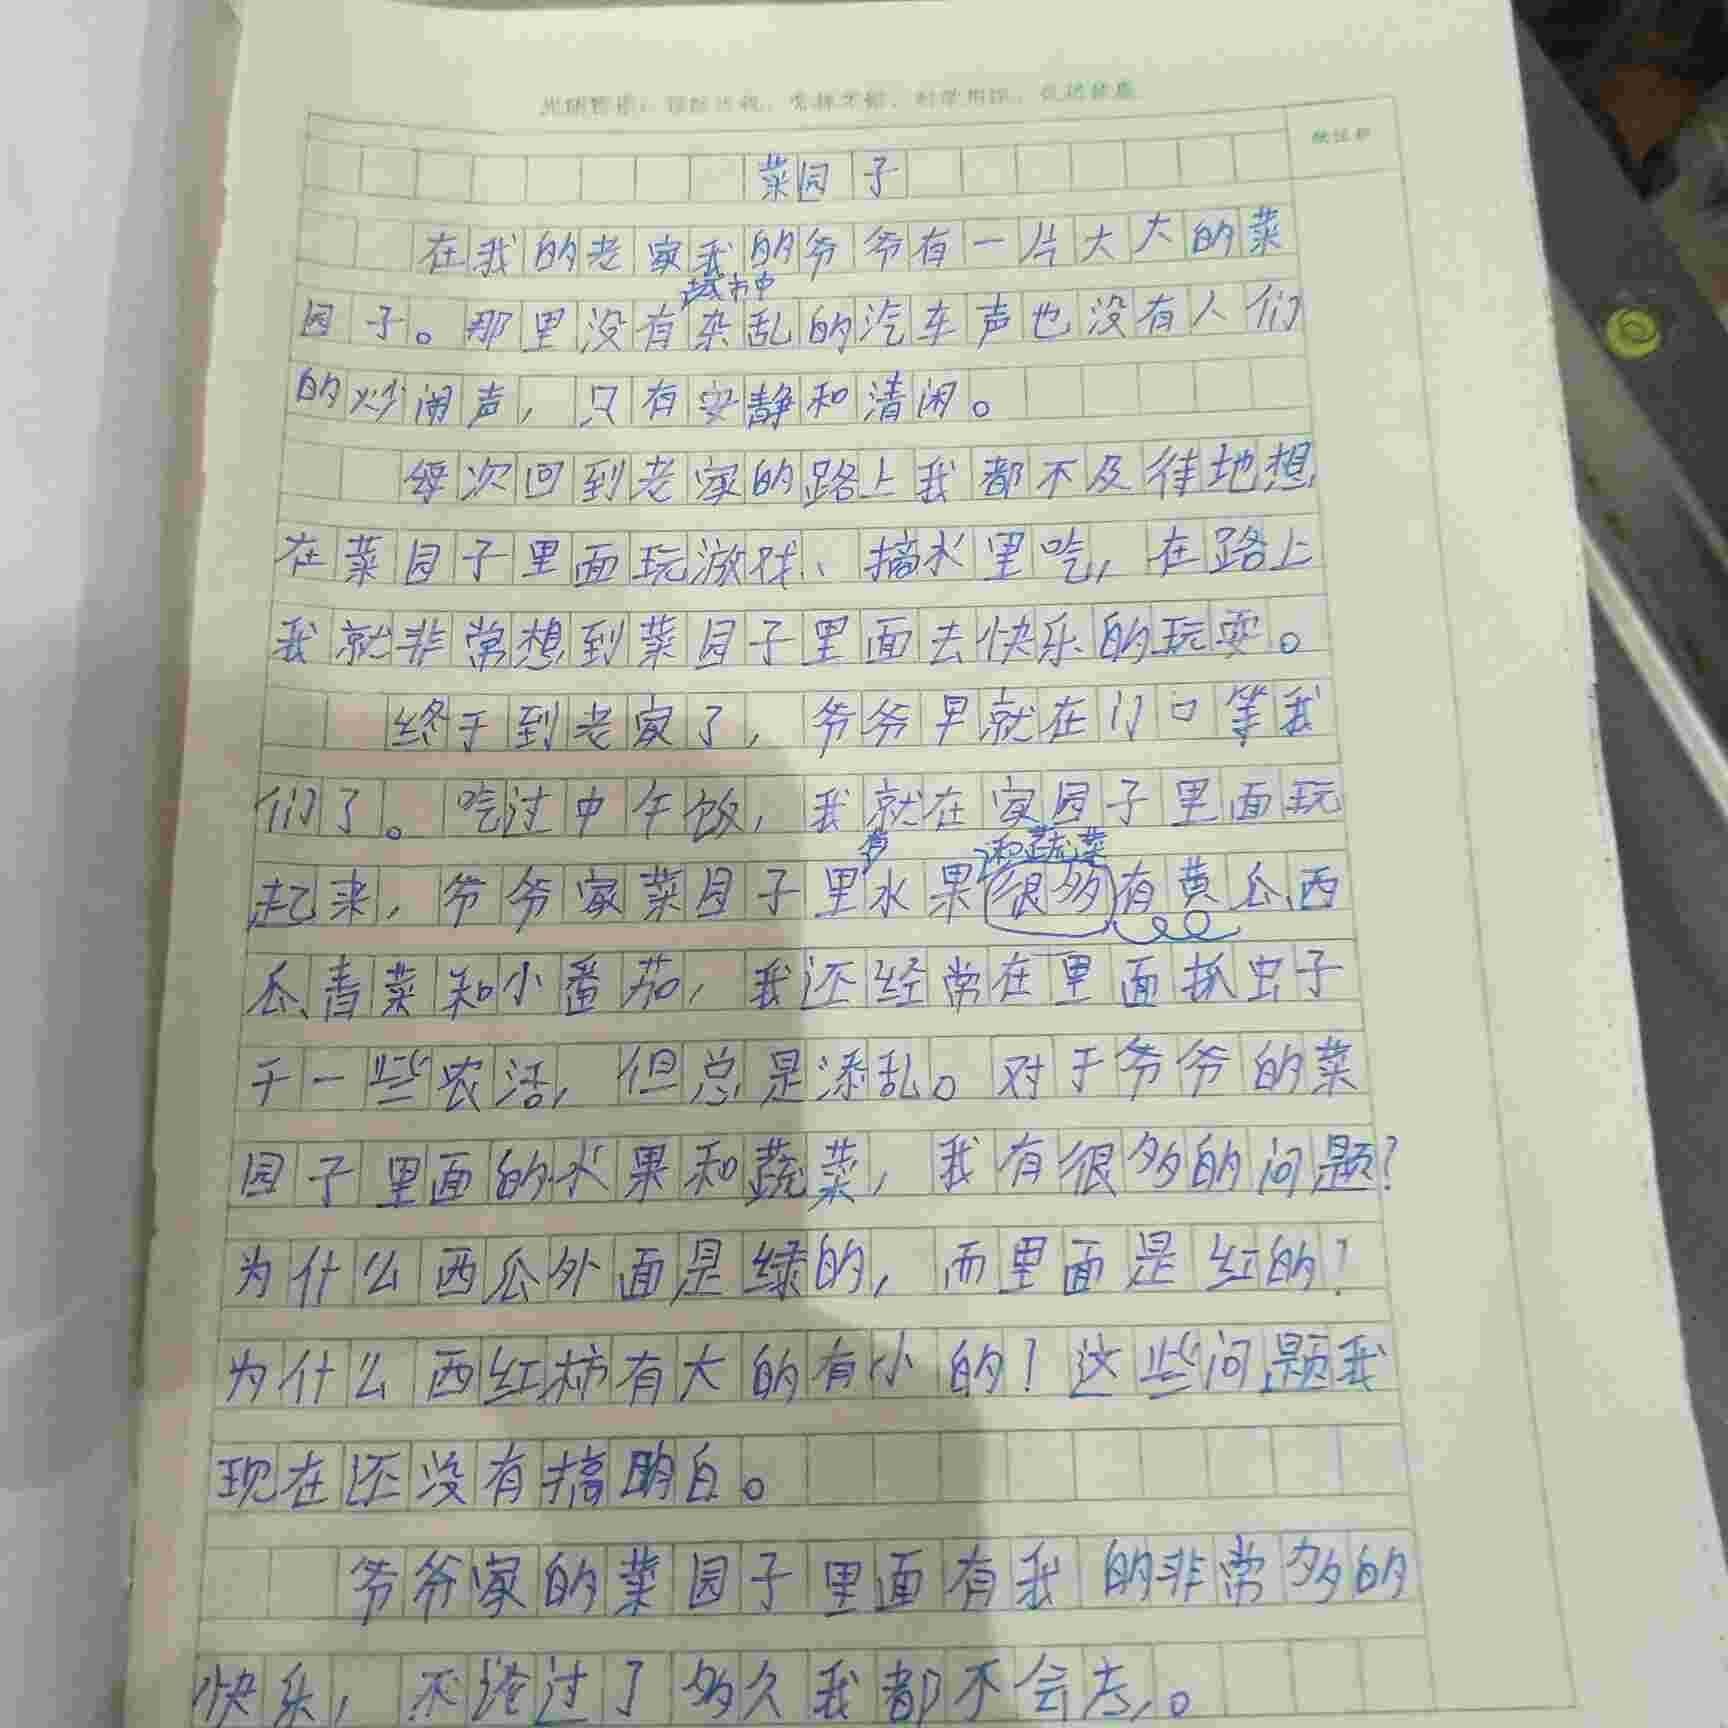 菜园子
在我的老家我的爷爷有一片大大的菜
园子。那里没有城市中杂乱的汽车声也没有人们
的吵闹声，只有安静和清闲。
每次回到老家的路上我都不及待地想
在菜园子里面玩游戏、摘水里吃，在路上
我就非常想到菜园子里面去快乐的玩耍。
终于到老家了，爷爷早就在门口等我
们了。吃过中午饭，我就在家园子里面玩
起来，爷爷家菜园子里有水果和蔬菜很多有黄瓜西
瓜、青菜和小番茄，我还经常在里面抓虫子
干一些农活，但总是添乱。对于爷爷的菜
园子里面的水果和蔬菜，我有很多的问题？
为什么西瓜外面是绿的，而里面是红的？
为什么西红柿有大的有小的？这些问题我
现在还没有搞明白。
爷爷家的菜园子里面有我的非常多的
快乐，不论过了多久我都不会忘。